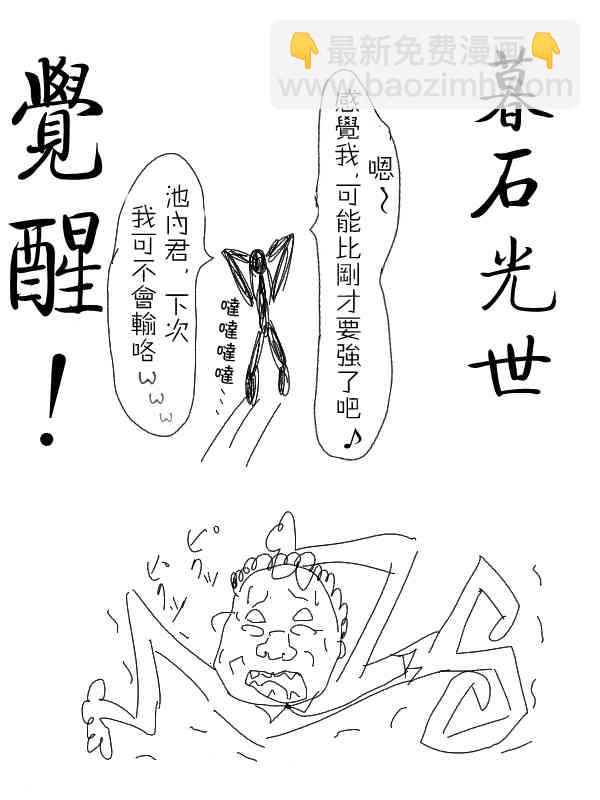 最新免费漫画
www.baozimh.com
暮石光世
覺醒！
嗯～
感覺我，可能比剛才要強了吧♪
池內君，下次
我可不會輸咯ωωω
噠噠噠噠…
ピクッ
ピクッ